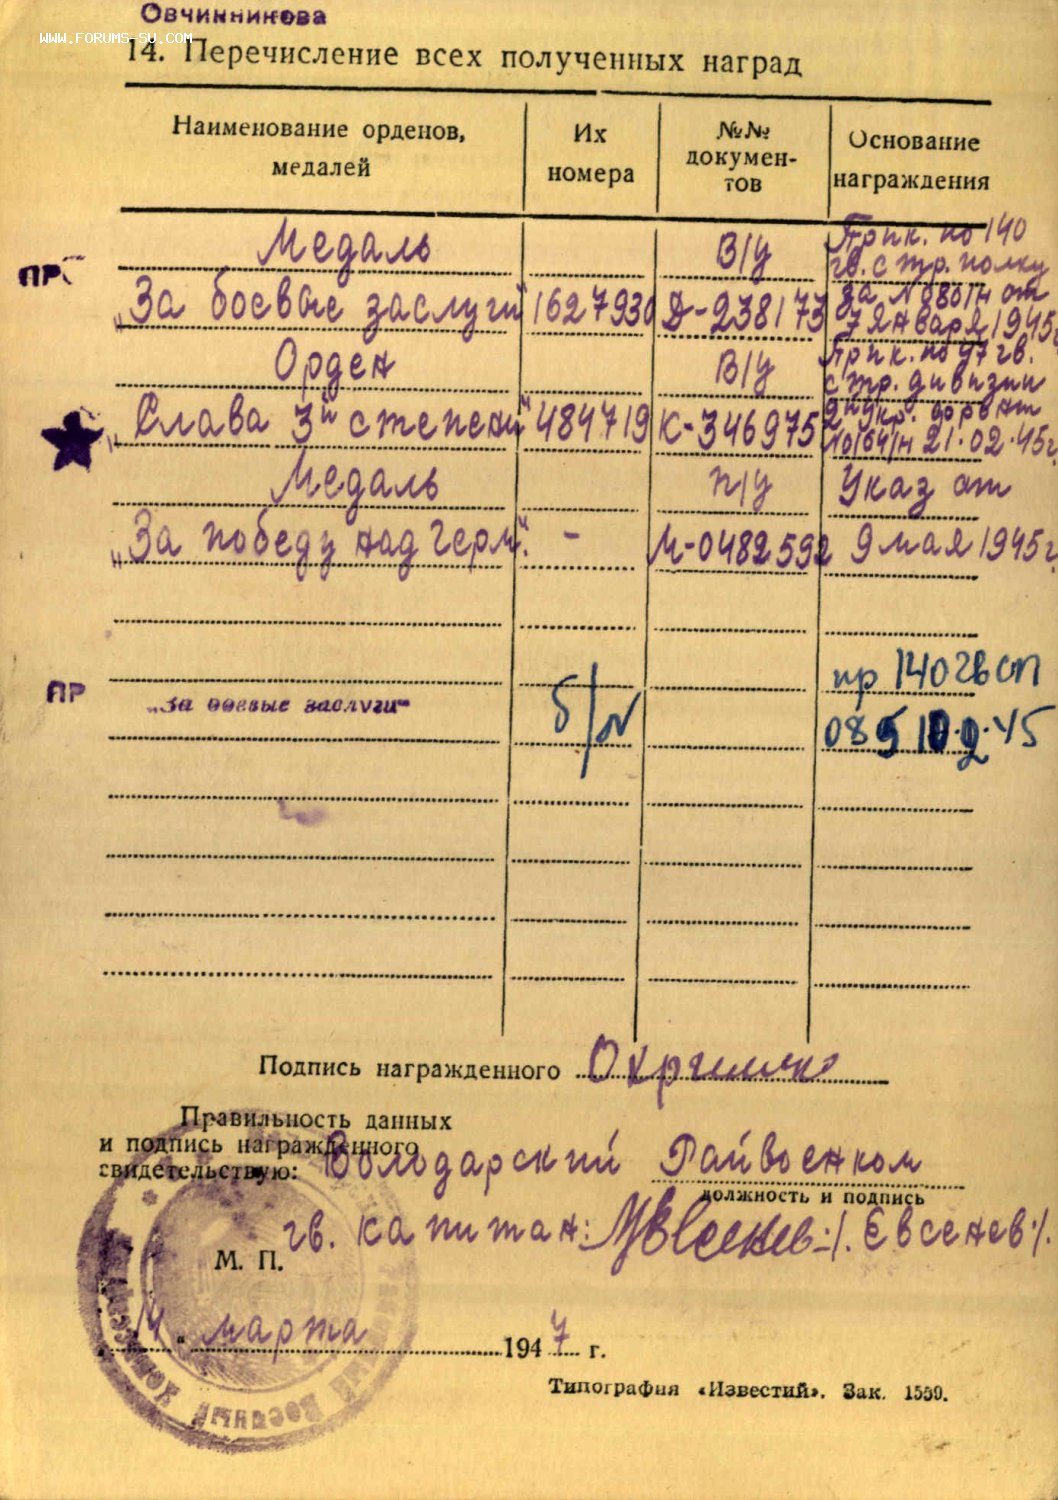 Овчинникова
WWW.FORUMS-SU.COM
14. Перечисление всех полученных наград
Наименование орденов, медалей
Их номера
№№ докумен-
тов
Основание награждения
Медаль В/у Прик. по 140
гв. стр. полку
ПР
„За боевые заслуги" 1627930 Д-238173 за № 080/н от
7 января 1945
Орден В/у Прик. по 97 гв.
стр. дивизии
„Слава 3й степени" 484719 К-346975 2й Укр. фронт
№0/64/н 21.02.45г.
Медаль п/у Указ от
„За победу над Герм." - М-0482592 9 мая 1945 г.
пр 140 гв СП
ПР „За боевые заслуги" б/№
085 10.2.45
Подпись награжденного
Правильность данных
и подпись награжденного
свидетельствую: Володарский Райвоенком
должность и подпись
гв. капитан: /. Евсенев ./.
М. П.
14 " марта 1947 г.
Типография «Известий». Зак. 1559.